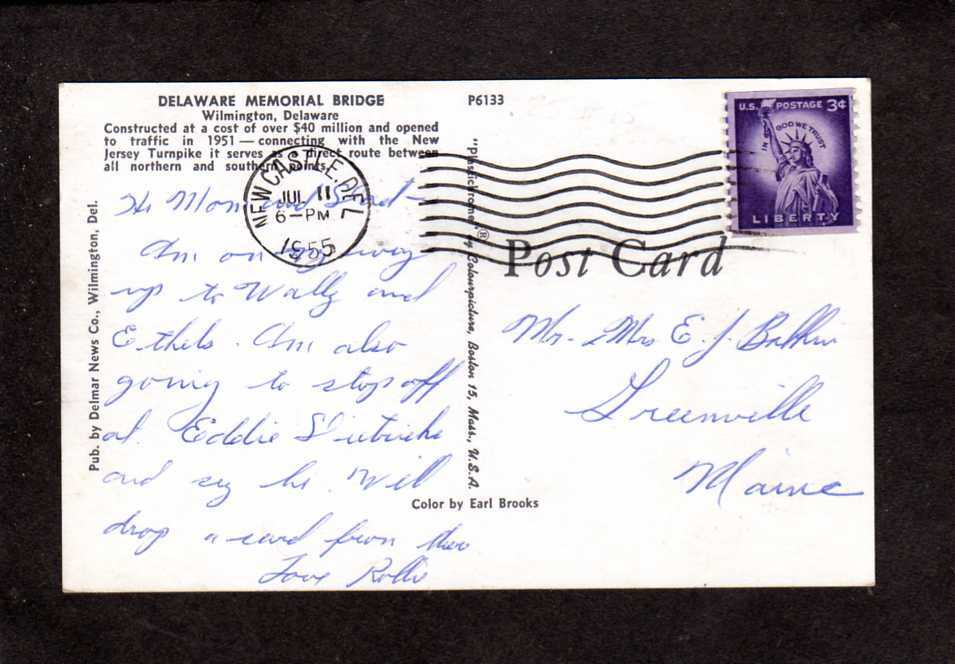 DELAWARE MEMORIAL BRIDGE
Wilmington, Delaware
Constructed at a cost of over $40 million and opened
to traffic in 1951—connecting with the New
Jersey Turnpike it serves as direct route between
all northern and southern points.
P6133
U.S. POSTAGE 3¢
IN GOD WE TRUST
LIBERTY
NEW CASTLE, DEL
JUL 11
6-PM
1955
Hi Mom and
Am on my way
up to Wally and
Ethels. Am also
going to stop off
at Eddie
and say hi. Will
drop a card from there
Love Rollo
Pub. by Delmar News Co., Wilmington, Del.
"Plastichrome"® by Colourpicture, Boston 15, Mass., U.S.A.
Post Card
Mr. Mrs E. J.
Greenville
Maine
Color by Earl Brooks